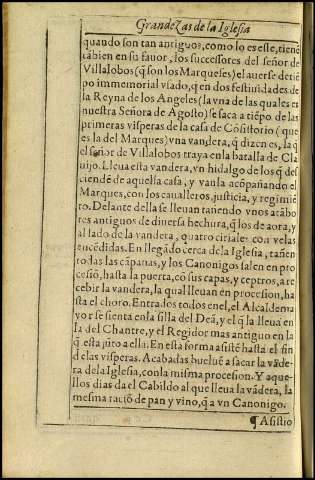 Grandezas de la Iglesia
quando son tan antiguos, como lo es esle, tienē
tābien en su fauor, los successores del señor de
Villalobos (q̄ son los Marqueses) el auerse de tiē
po immemorial vsado, q̄ en dos festiuidades de
la Reyna de los Angeles (la vna de las quales es
nuestra Señora de Agosto) se saca a tiēpo de las
primeras visperas de la casa de Cōsistorio (que
es la del Marques) vna vandera, q̄ dizen es, la q̄
el señor de Villalobos traya en la batalla de Cla
uijo. Lleua esta vandera, vn hidalgo de los q̄ des
ciendē de aquella casa, y van la acōpañando el
Marques, con los caualleros, justicia, y regimiē
to. Delante della se lleuan tañendo vnos atābo
res antiguos de diuersa hechura, q̄ los de aora, y
al lado de la vandera, quatro ciriales con velas
encēdidas. En llegādo cerca de la Iglesia, tañen
todas las cāpanas, y los Canonigos salen en pro
cesiō, hasta la puerta, cō sus capas, y ceptros, a re
cebir la vandera, la qual lleuan en procesion, ha
sta el choro. Entrādos todos en el, el Alcaldema
yor se sienta en la silla del Deā, y el q̄ la lleua en
la del Chantre, y el Regidor mas antiguo en la
q̄ esta jūto a ella. En esta forma asistē hasta el fin
de las visperas. Acabadas buelue a sacar la vāde-
ra de la Iglesia, con la misma procesion. Y aque-
llos dias da el Cabildo al que lleua la vādera, la
mesma raciō de pan y vino, q̄ a vn Canonigo.
¶ Asistio